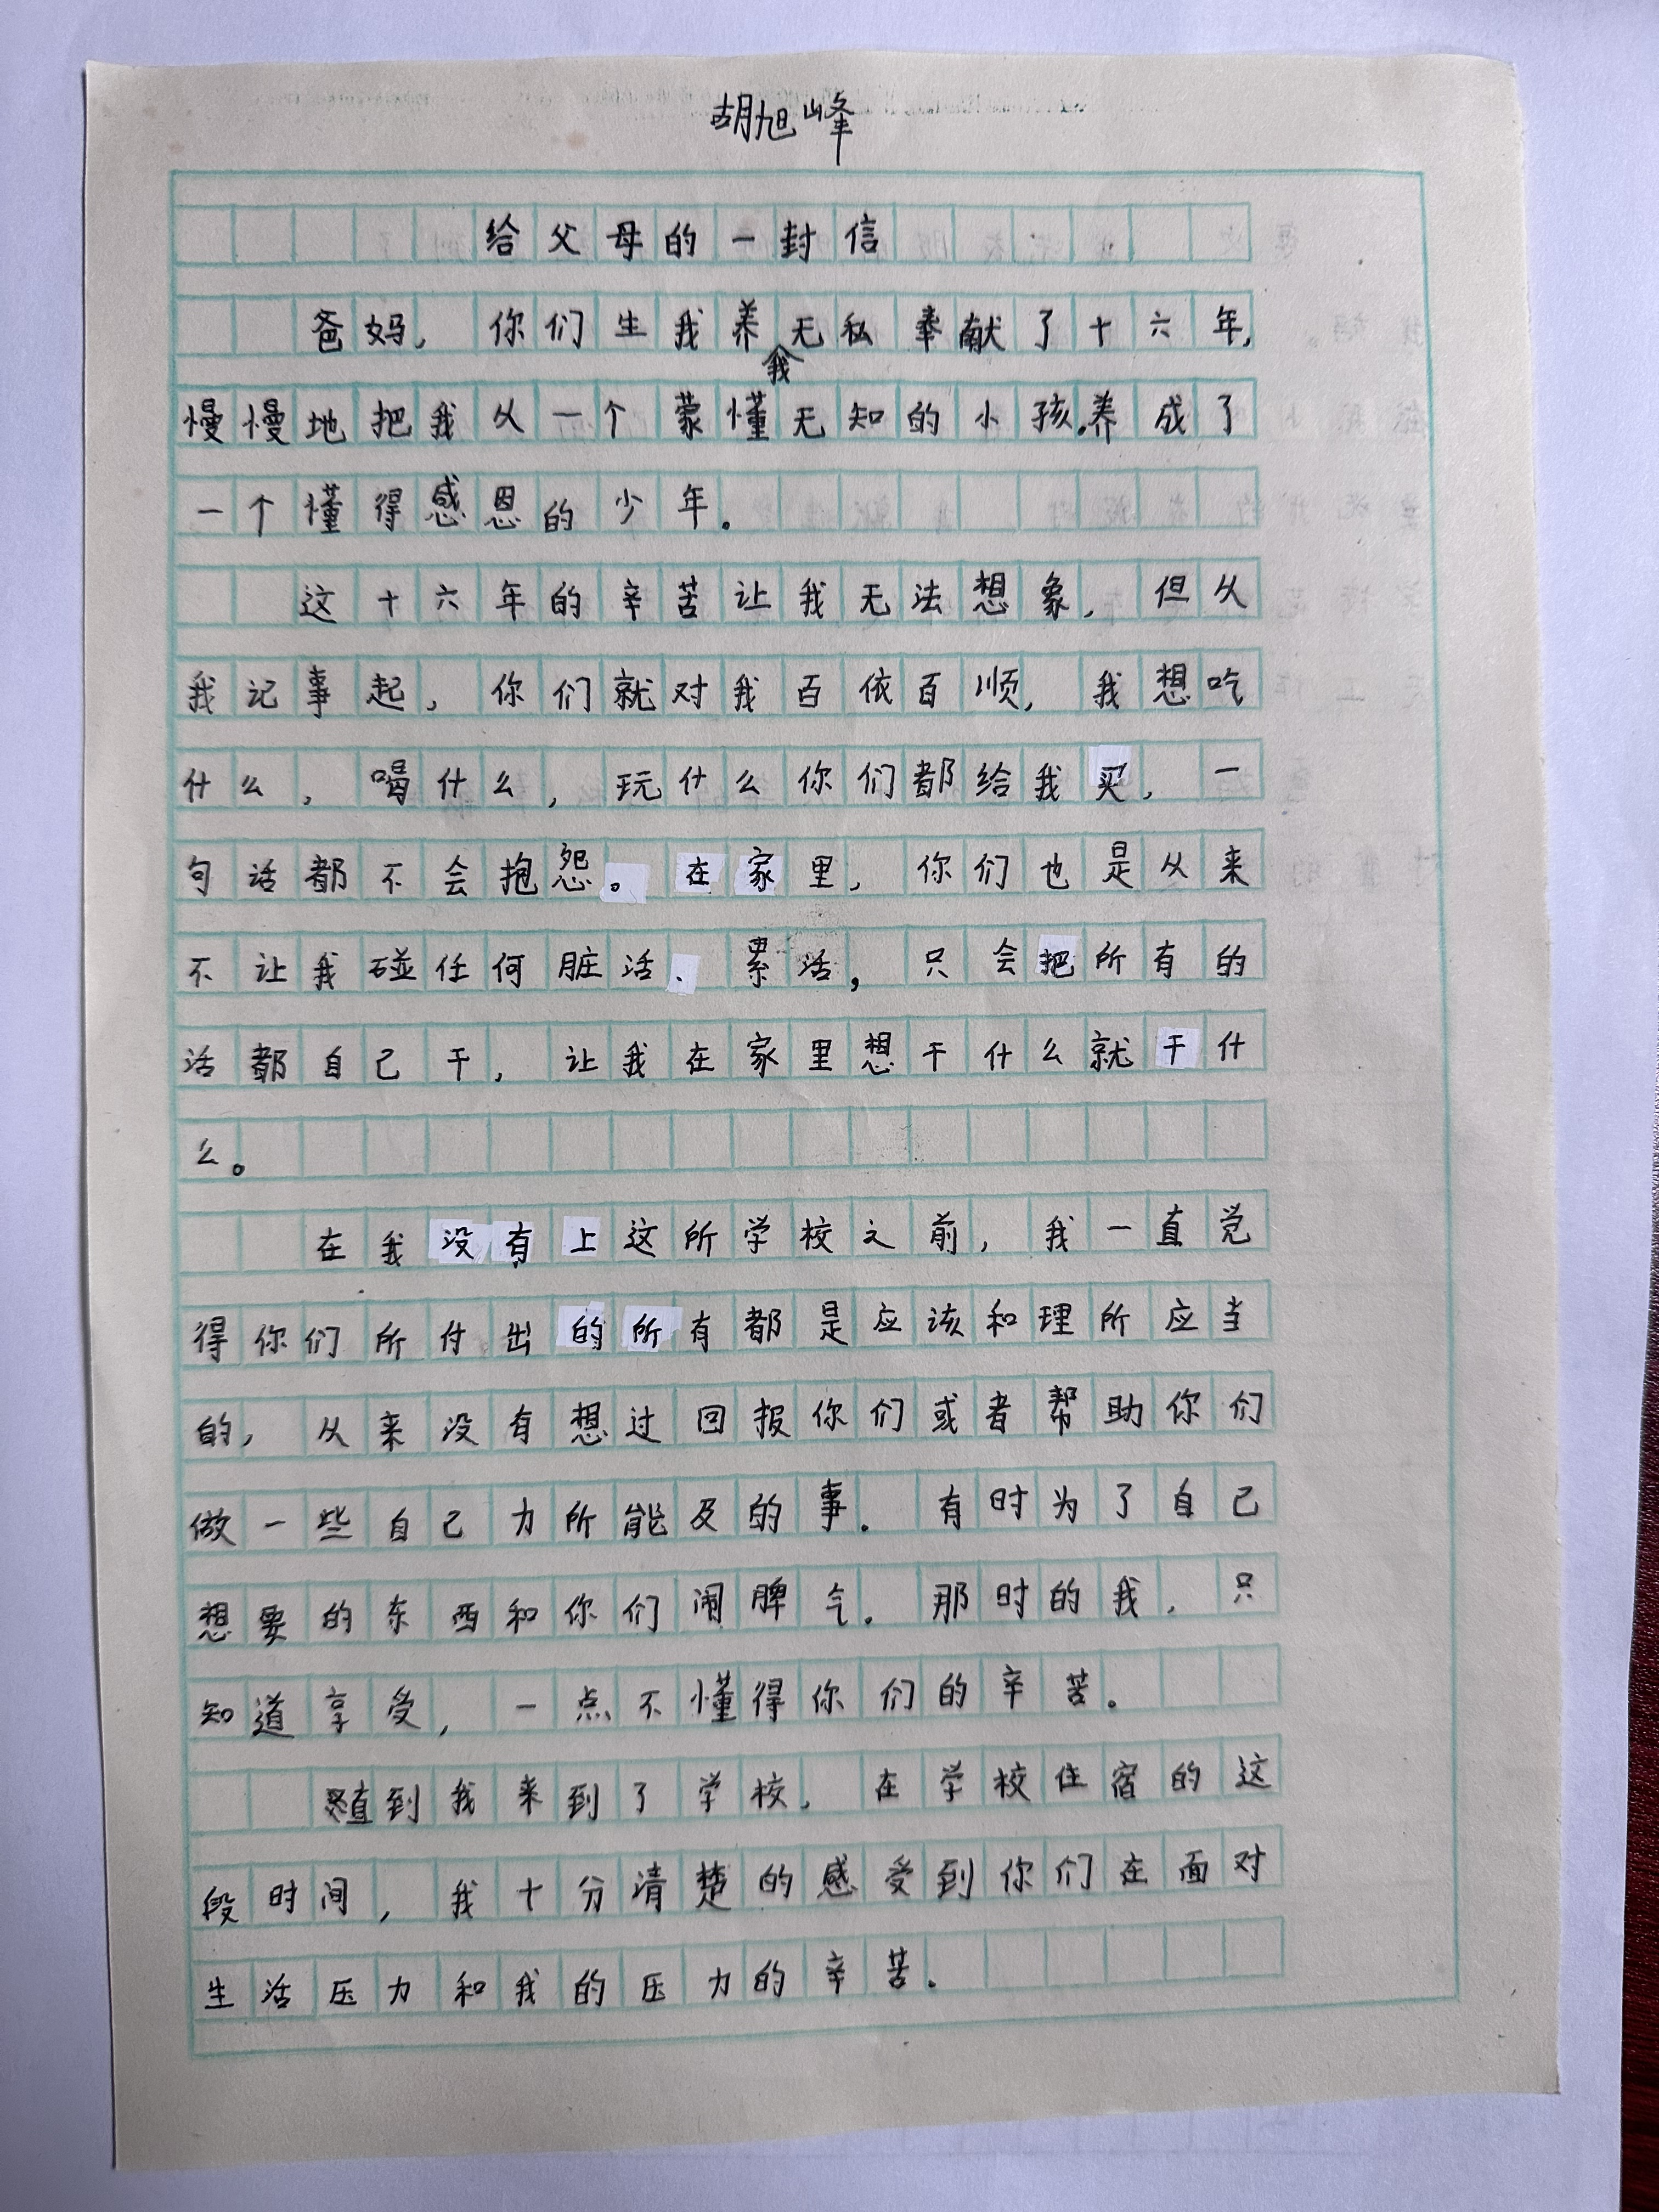 胡旭峰
给父母的一封信
爸妈，你们生我养我无私奉献了十六年，
慢慢地把我从一个蒙懂无知的小孩养成了
一个懂得感恩的少年。
这十六年的辛苦让我无法想象，但从
我记事起，你们就对我百依百顺，我想吃
什么，喝什么，玩什么你们都给我买，一
句话都不会抱怨。在家里，你们也是从来
不让我碰任何脏活、累活，只会把所有的
活都自己干，让我在家里想干什么就干什
么。
在我没有上这所学校之前，我一直觉
得你们所付出的所有都是应该和理所应当
的，从来没有想过回报你们或者帮助你们
做一些自己力所能及的事。有时为了自己
想要的东西和你们闹脾气。那时的我，只
知道享受，一点不懂得你们的辛苦。
直到我来到了学校，在学校住宿的这
段时间，我十分清楚的感受到你们在面对
生活压力和我的压力的辛苦。